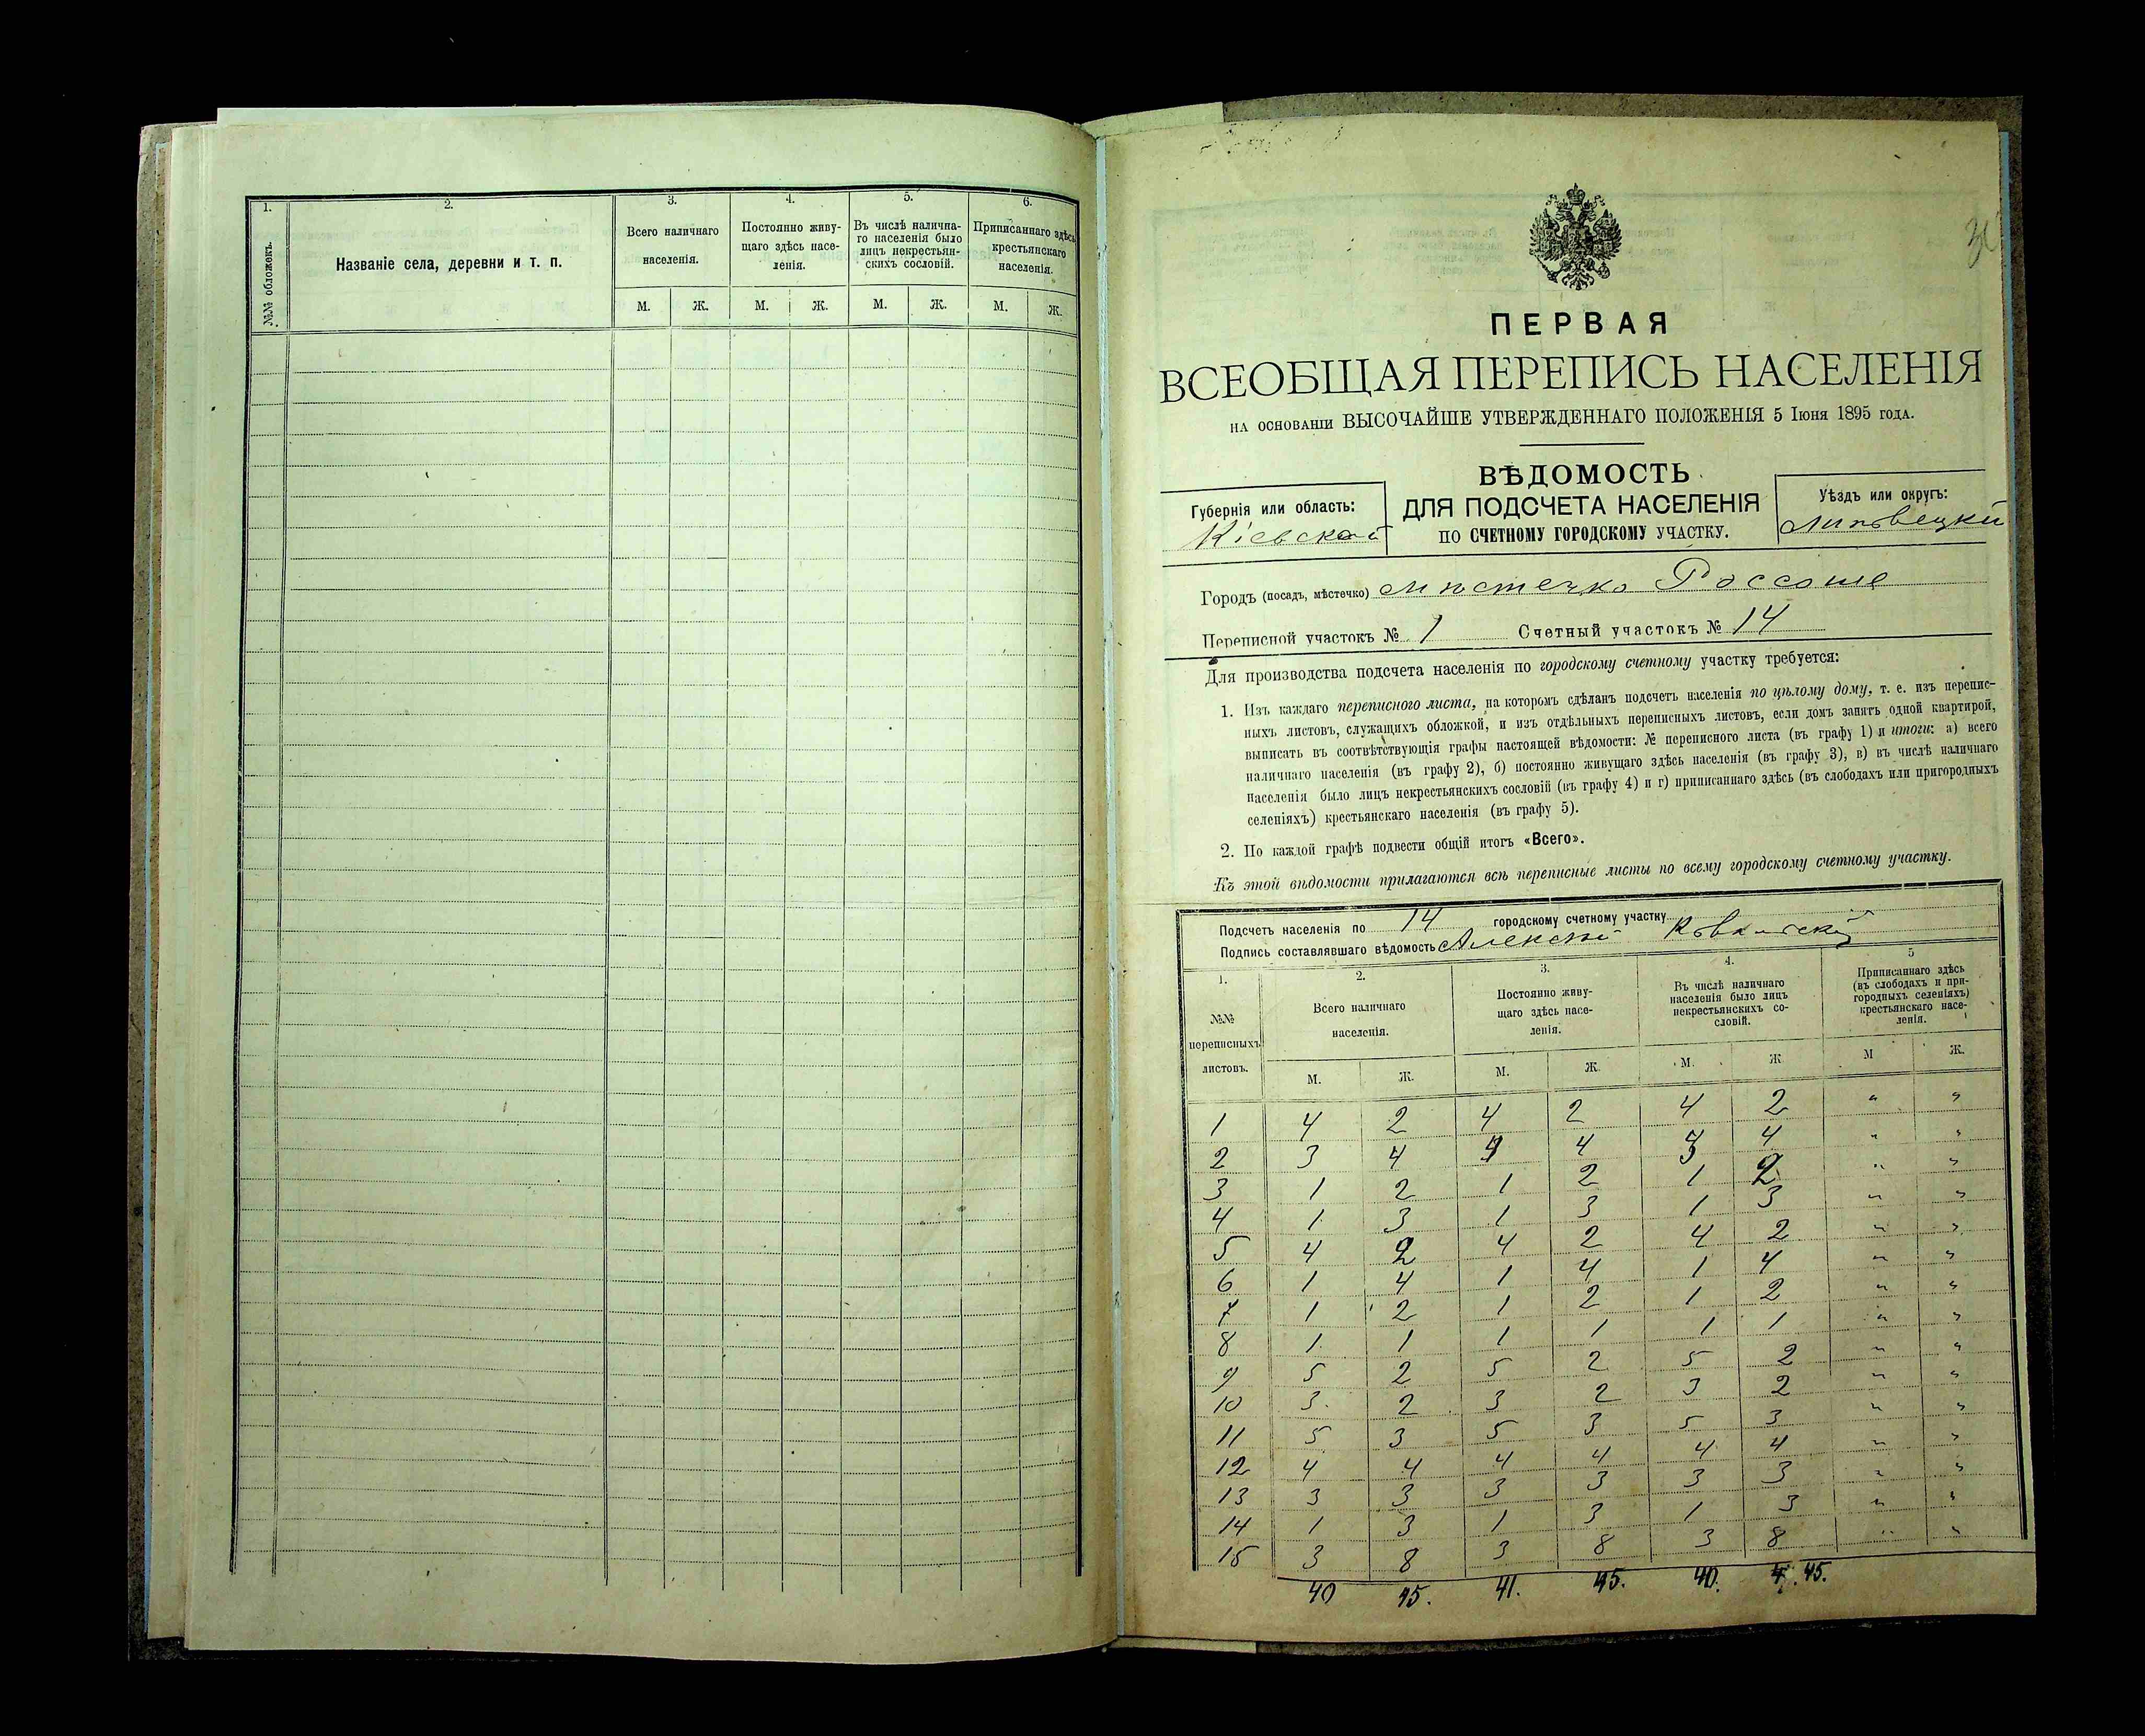 1. 2. 3. 4. 5. 6.
№№ обложекъ.
Названіе села, деревни и т. п.
Всего наличнаго
населенія.
Постоянно живу-
щаго здѣсь насе-
ленія.
Въ числѣ налична-
го населенія было
лицъ некрестьян-
скихъ сословій.
Приписаннаго здѣсь
крестьянскаго
населенія.
М. Ж. М. Ж. М. Ж. М. Ж.
ПЕРВАЯ
ВСЕОБЩАЯ ПЕРЕПИСЬ НАСЕЛЕНІЯ
НА ОСНОВАНІИ ВЫСОЧАЙШЕ УТВЕРЖДЕННАГО ПОЛОЖЕНІЯ 5 Іюня 1895 ГОДА.
ВѢДОМОСТЬ
ДЛЯ ПОДСЧЕТА НАСЕЛЕНІЯ
ПО СЧЕТНОМУ ГОРОДСКОМУ УЧАСТКУ.
Губернія или область:
Кіевская
Уѣздъ или округъ:
Липовецкій
Городъ (посадъ, мѣстечко) мѣстечко Россоше
Переписной участокъ № 1 Счетный участокъ № 14
Для производства подсчета населенія по городскому счетному участку требуется:
1. Изъ каждаго переписного листа, на которомъ сдѣланъ подсчетъ населенія по цѣлому дому, т. е. изъ перепис-
ныхъ листовъ, служащихъ обложкой, и изъ отдѣльныхъ переписныхъ листовъ, если домъ занятъ одной квартирой,
выписать въ соотвѣтствующія графы настоящей вѣдомости: № переписного листа (въ графу 1) и итоги: а) всего
наличнаго населенія (въ графу 2), б) постоянно живущаго здѣсь населенія (въ графу 3), в) въ числѣ наличнаго
населенія было лицъ некрестьянскихъ сословій (въ графу 4) и г) приписаннаго здѣсь (въ слободахъ или пригородныхъ
селеніяхъ) крестьянскаго населенія (въ графу 5).
2. По каждой графѣ подвести общій итогъ «Всего».
Къ этой вѣдомости прилагаются всѣ переписные листы по всему городскому счетному участку.
Подсчетъ населенія по 14 городскому счетному участку
Подпись составлявшаго вѣдомость Алексѣй
1. 2. 3. 4. 5
№№
переписныхъ
листовъ.
Всего наличнаго
населенія.
Постоянно живу-
щаго здѣсь насе-
ленія.
Въ числѣ наличнаго
населенія было лицъ
некрестьянскихъ со-
словій.
Приписаннаго здѣсь
(въ слободахъ и при-
городныхъ селеніяхъ)
крестьянскаго насе-
ленія.
М. Ж. М. Ж. М. Ж М Ж.
1 4 2 4 2 4 2 " "
2 3 4 4 4 3 4 " "
3 1 2 1 2 1 2 " "
4 1 3 1 3 1 3 " "
5 4 2 4 2 4 2 " "
6 1 4 1 4 1 4 " "
7 1 2 1 2 1 2 " "
8 1 1 1 1 1 1 " "
9 5 2 5 2 5 2 " "
10 3 2 3 2 3 2 " "
11 5 3 5 3 5 3 " "
12 4 4 4 4 4 4 " "
13 3 3 3 3 3 3 " "
14 1 3 1 3 1 3 " "
15 3 8 3 8 3 8 " "
40 45. 41. 45. 40. 45.